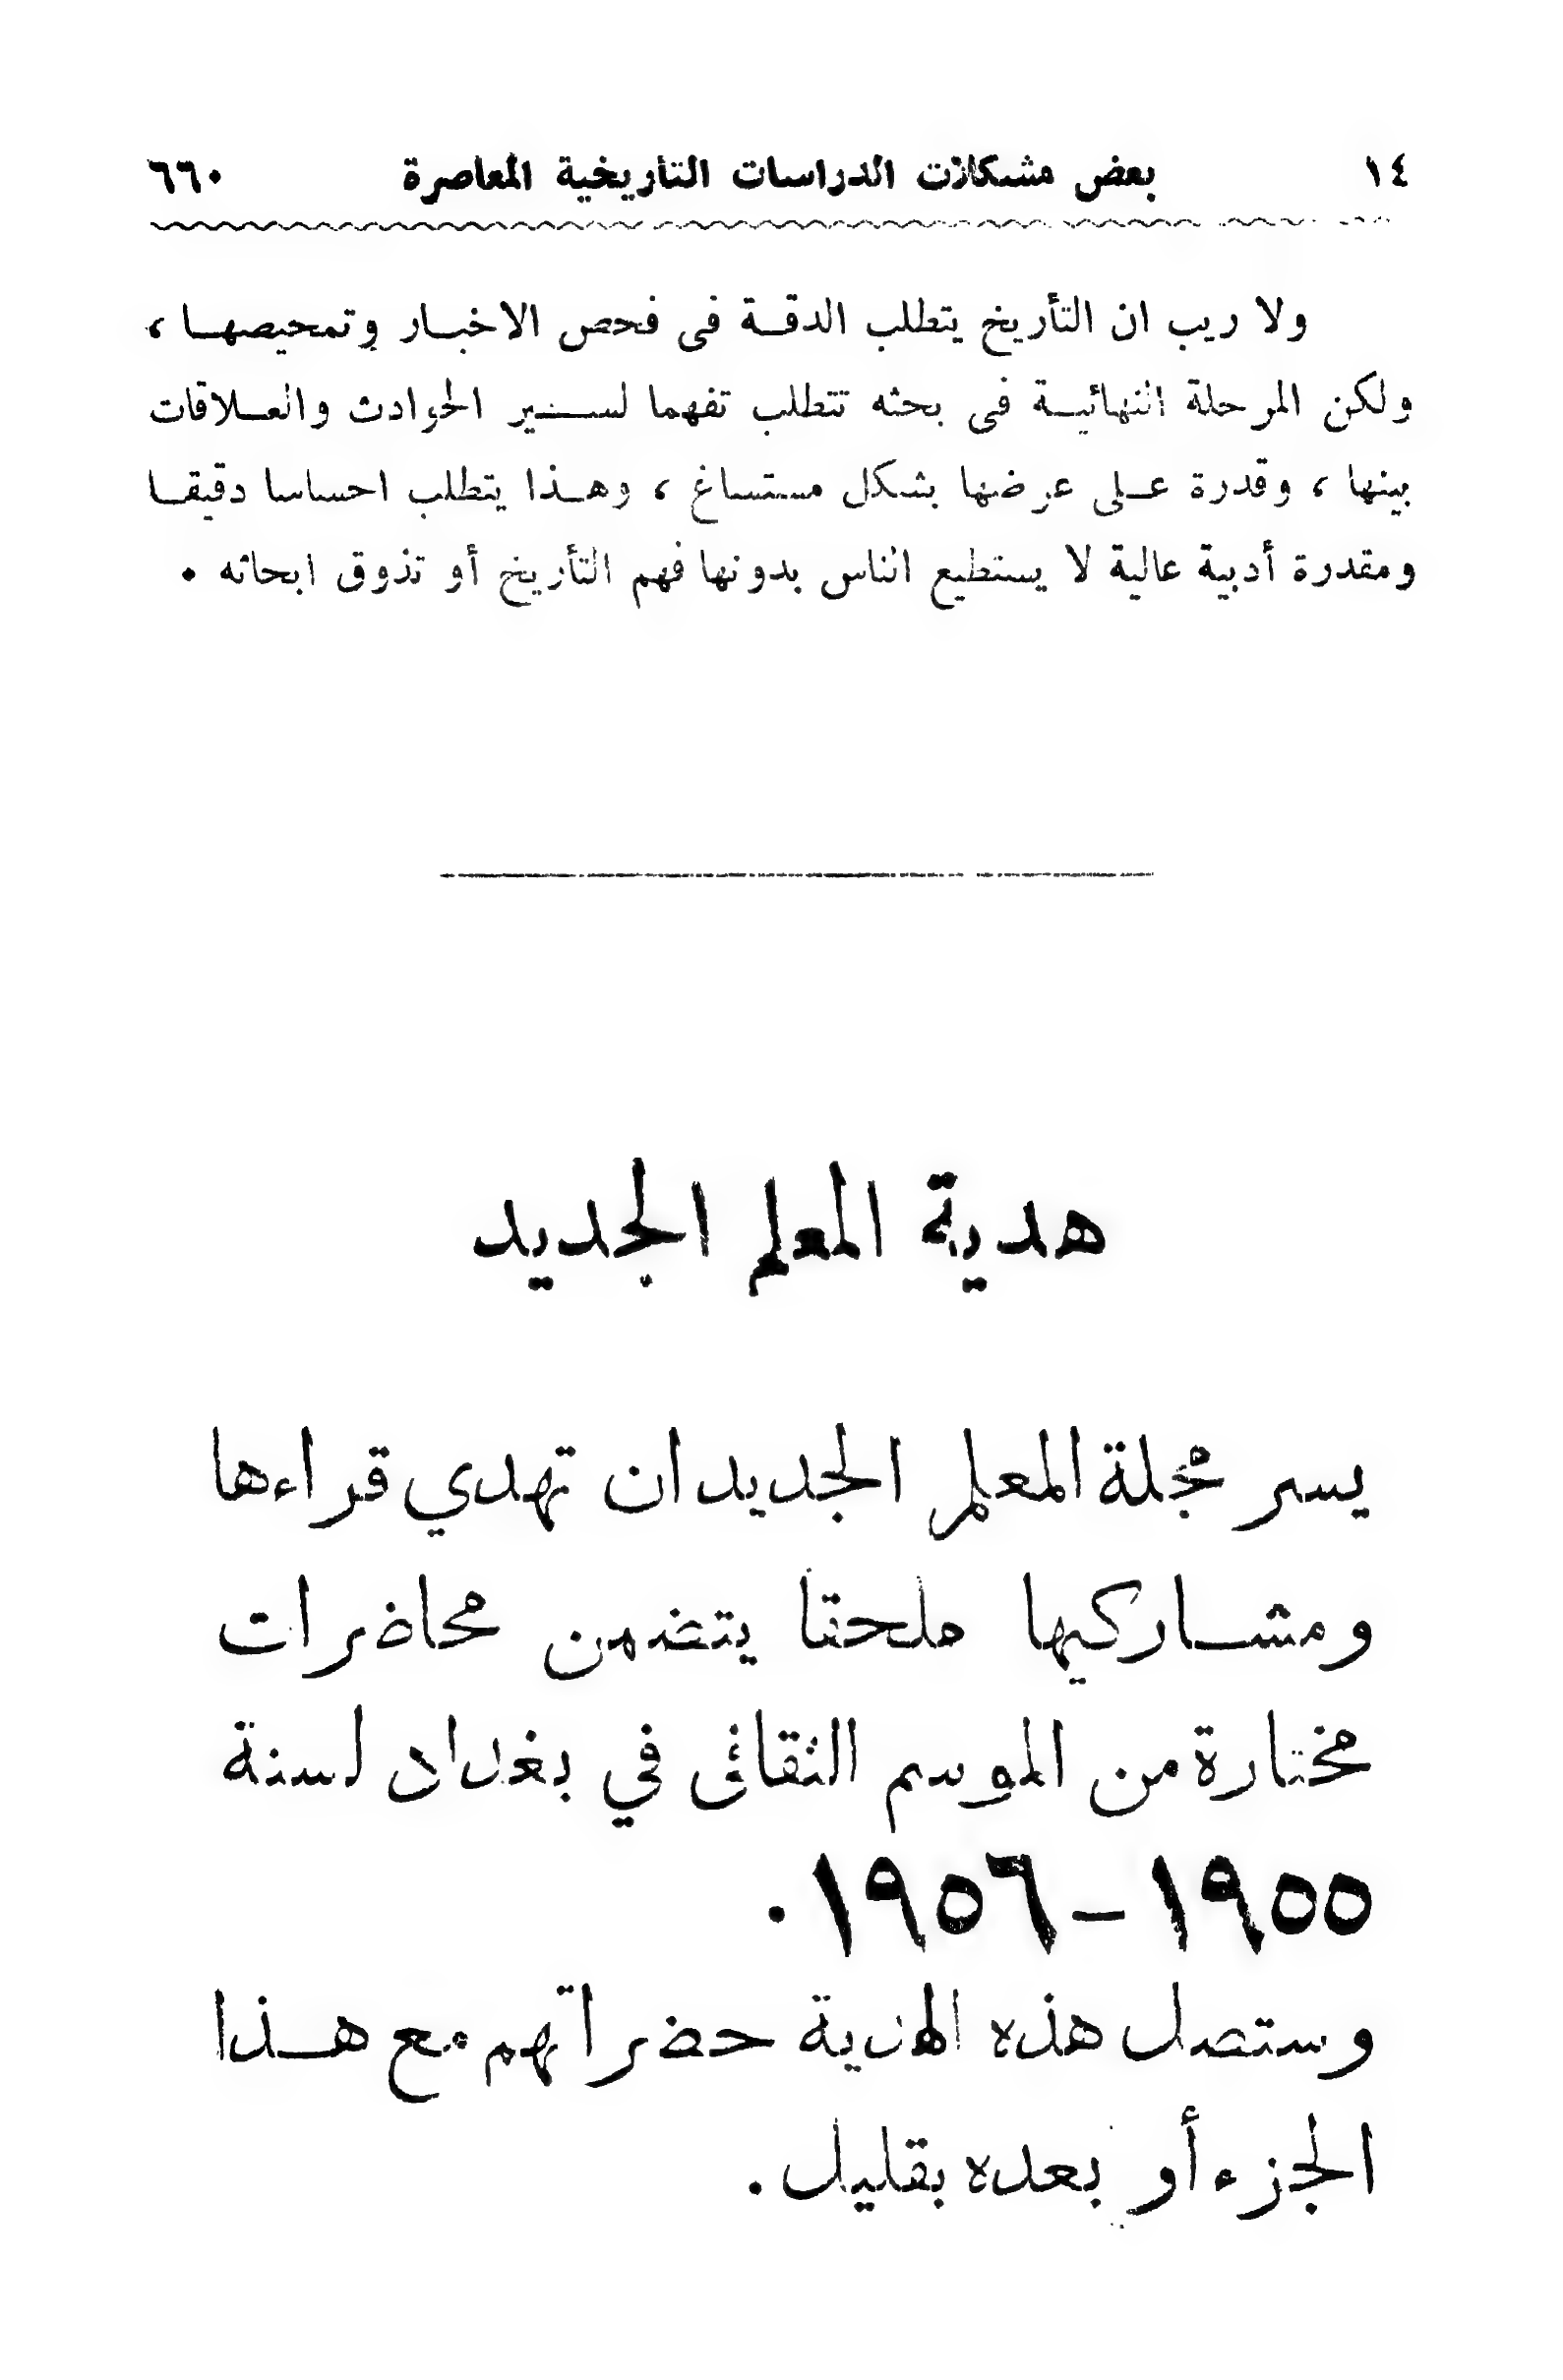 ١٤ بعض مشكلات الدراسات التاريخية المعاصرة ٦٦٠
ولا ريب ان التأريخ يتطلب الدقة فى فحص الاخبار وتمحيصها ،
ولكن المرحلة النهائية فى بحثه تتطلب تفهما لسير الحوادث والعلاقات
بينها ، وقدرة على عرضها بشكل مستساغ ، وهذا يتطلب احساسا دقيقا
ومقدرة أدبية عالية لا يستطيع الناس بدونها فهم التأريخ أو تذوق ابحاثه .
هدية المعلم الجديد
يسر مجلة المعلم الجديد ان تهدي قراءها
ومشاركيها ملحقا يتضمن محاضرات
مختارة من الموسم الثقافى في بغداد لسنة
١٩٥٥ - ١٩٥٦ .
وستصل هذه الهدية حضراتهم مع هذا
الجزء أو بعده بقليل .